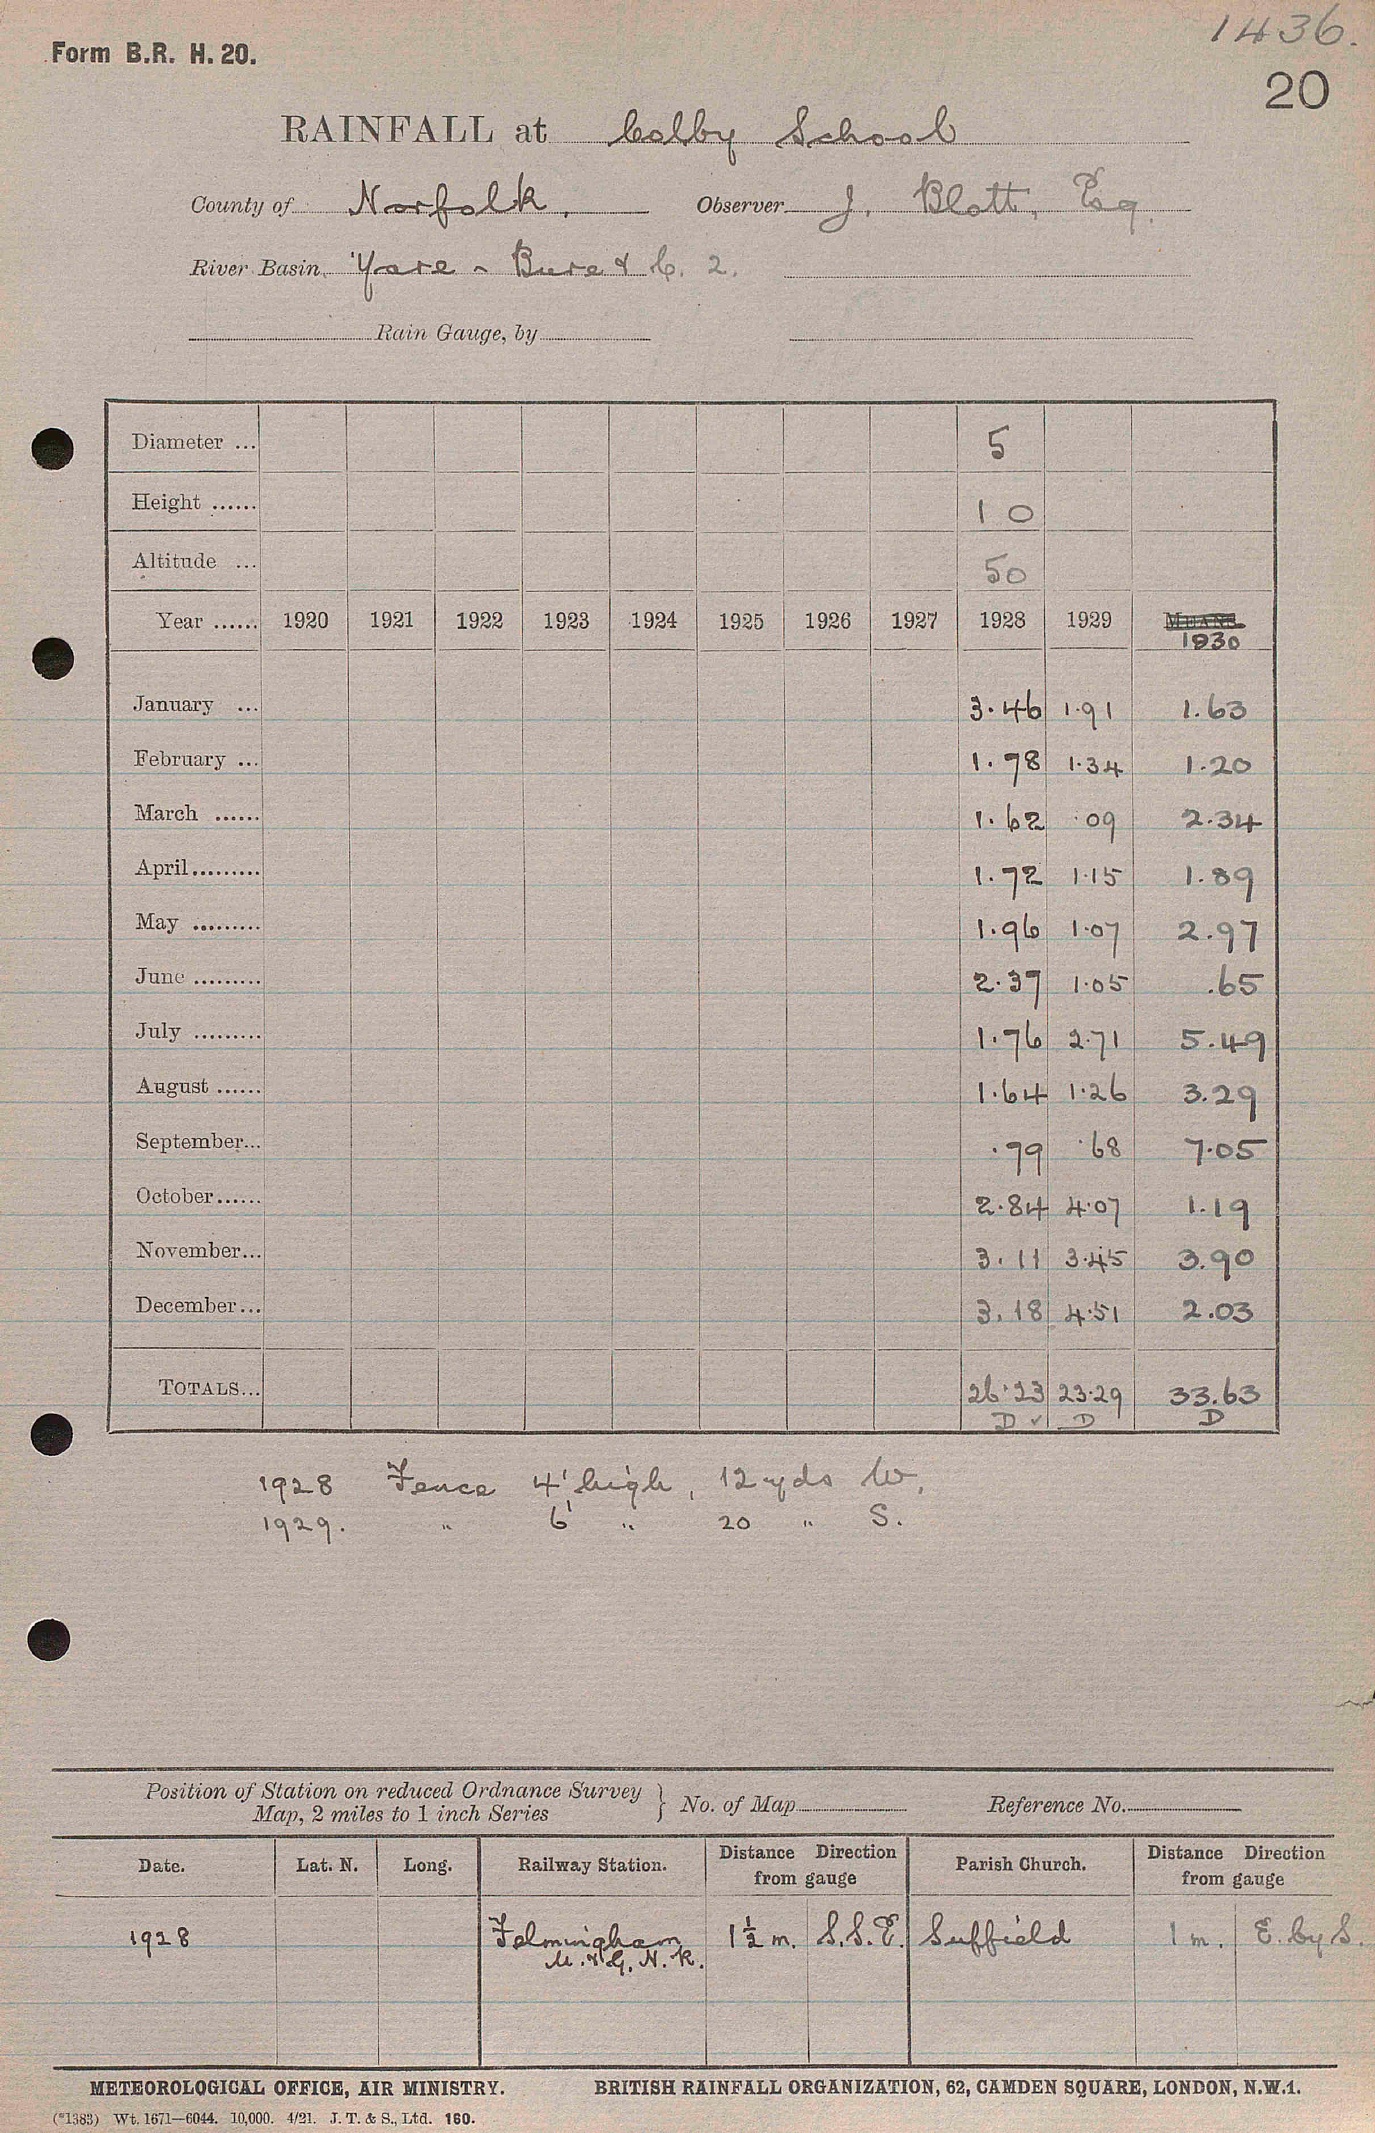 1436.
Form B.R. H. 20.
20
RAINFALL at Colby School
County of Norfolk. Observer J. Blott, Esq.
River Basin Yare - Bure & C. 2.
Rain Gauge, by
Diameter ... 5
Height ...... 10
Altitude ... 50
Year ...... 1920 1921 1922 1923 1924 1925 1926 1927 1928 1929 MEANS. 1930
January ... 3.46 1.91 1.63
February ... 1.78 1.34 1.20
March ...... 1.62 .09 2.34
April......... 1.72 1.15 1.89
May ......... 1.96 1.07 2.97
June ......... 2.37 1.05 .65
July ......... 1.76 2.71 5.49
August ...... 1.64 1.26 3.29
September... .79 .68 7.05
October...... 2.84 4.07 1.19
November... 3.11 3.45 3.90
December... 3.18 4.51 2.03
TOTALS... 26.23 23.29 33.63
D ✓ D D
1928 Fence 4' high, 12 yds W.
1929. " 6' " 20 " S.
Position of Station on reduced Ordnance Survey
Map, 2 miles to 1 inch Series } No. of Map Reference No.
Date. Lat. N. Long. Railway Station. Distance Direction from gauge Parish Church. Distance Direction from gauge
1928 Felmingham 1½ m. S.S.E. Suffield 1 m. E. by S.
M. & G. N. R.
METEOROLOGICAL OFFICE, AIR MINISTRY. BRITISH RAINFALL ORGANIZATION, 62, CAMDEN SQUARE, LONDON, N.W.1.
(*1383) Wt. 1671—6044. 10,000. 4/21. J. T. & S., Ltd. 160.